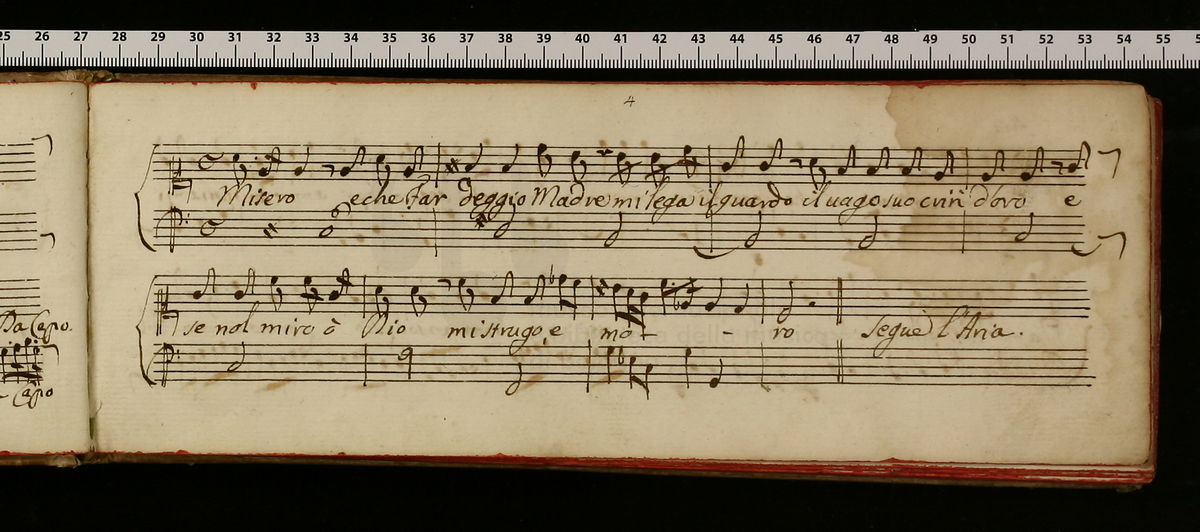 25 26 27 28 29 30 31 32 33 34 35 36 37 38 39 40 41 42 43 44 45 46 47 48 49 50 51 52 53 54 55
4
Misero e che far deggio Madre mi lega il guardo il uago suo crin d'oro e
Da Capo.
se nol miro ò Dio mi strugo, e mo - - ro segue l'Aria.
Capo